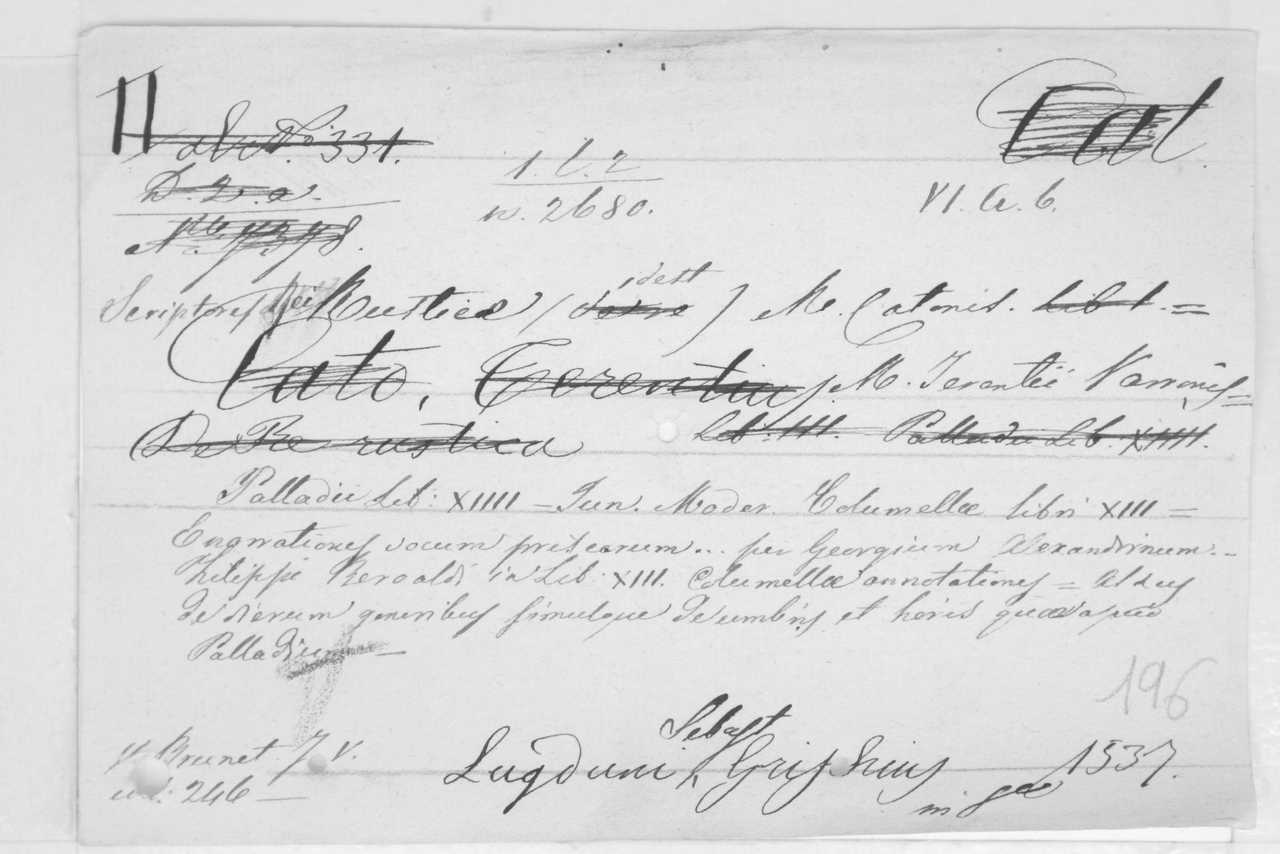 H
N.o 331.
D. 2. a.
1. C. 2
n. 2680.
VI. a. 6.
Cal.
Scriptores Rei Rusticæ (idest) M. Catonis. Lib 1. =
Cato, Terentius, M. Terentii Varronis =
De Re rustica Lib. III. Palladii Lib. XIIII.
Palladii Lib: XIIII – Jun. Moder. Columellæ libri XIII =
Enarrationes vocum priscarum... per Georgium Alexandrinum. –
Philippi Beroaldi in Lib: XIII. Columellæ annotationes = Aldus
de dierum generibus simulque de umbris et horis quæ apud
Palladium –
196
Brunet. T. V.
246 –
Lugduni, Sebast Griphius 1537.
in 8.º